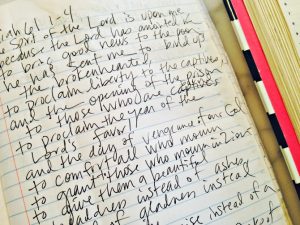 iah 61 1-4
the Lord is upon me
because the Lord has anointed me
to bring good news to the poor
he has sent me to bind up
the brokenhearted,
to proclaim liberty to the captives,
and the opening of the prison
to those who are captives
to proclaim the year of the
Lord's favor
and the day of vengeance of our God
to comfort all who mourn,
to grant those who mourn in Zion
to give them a beautiful
headdress instead of ashes
of gladness instead
instead of a